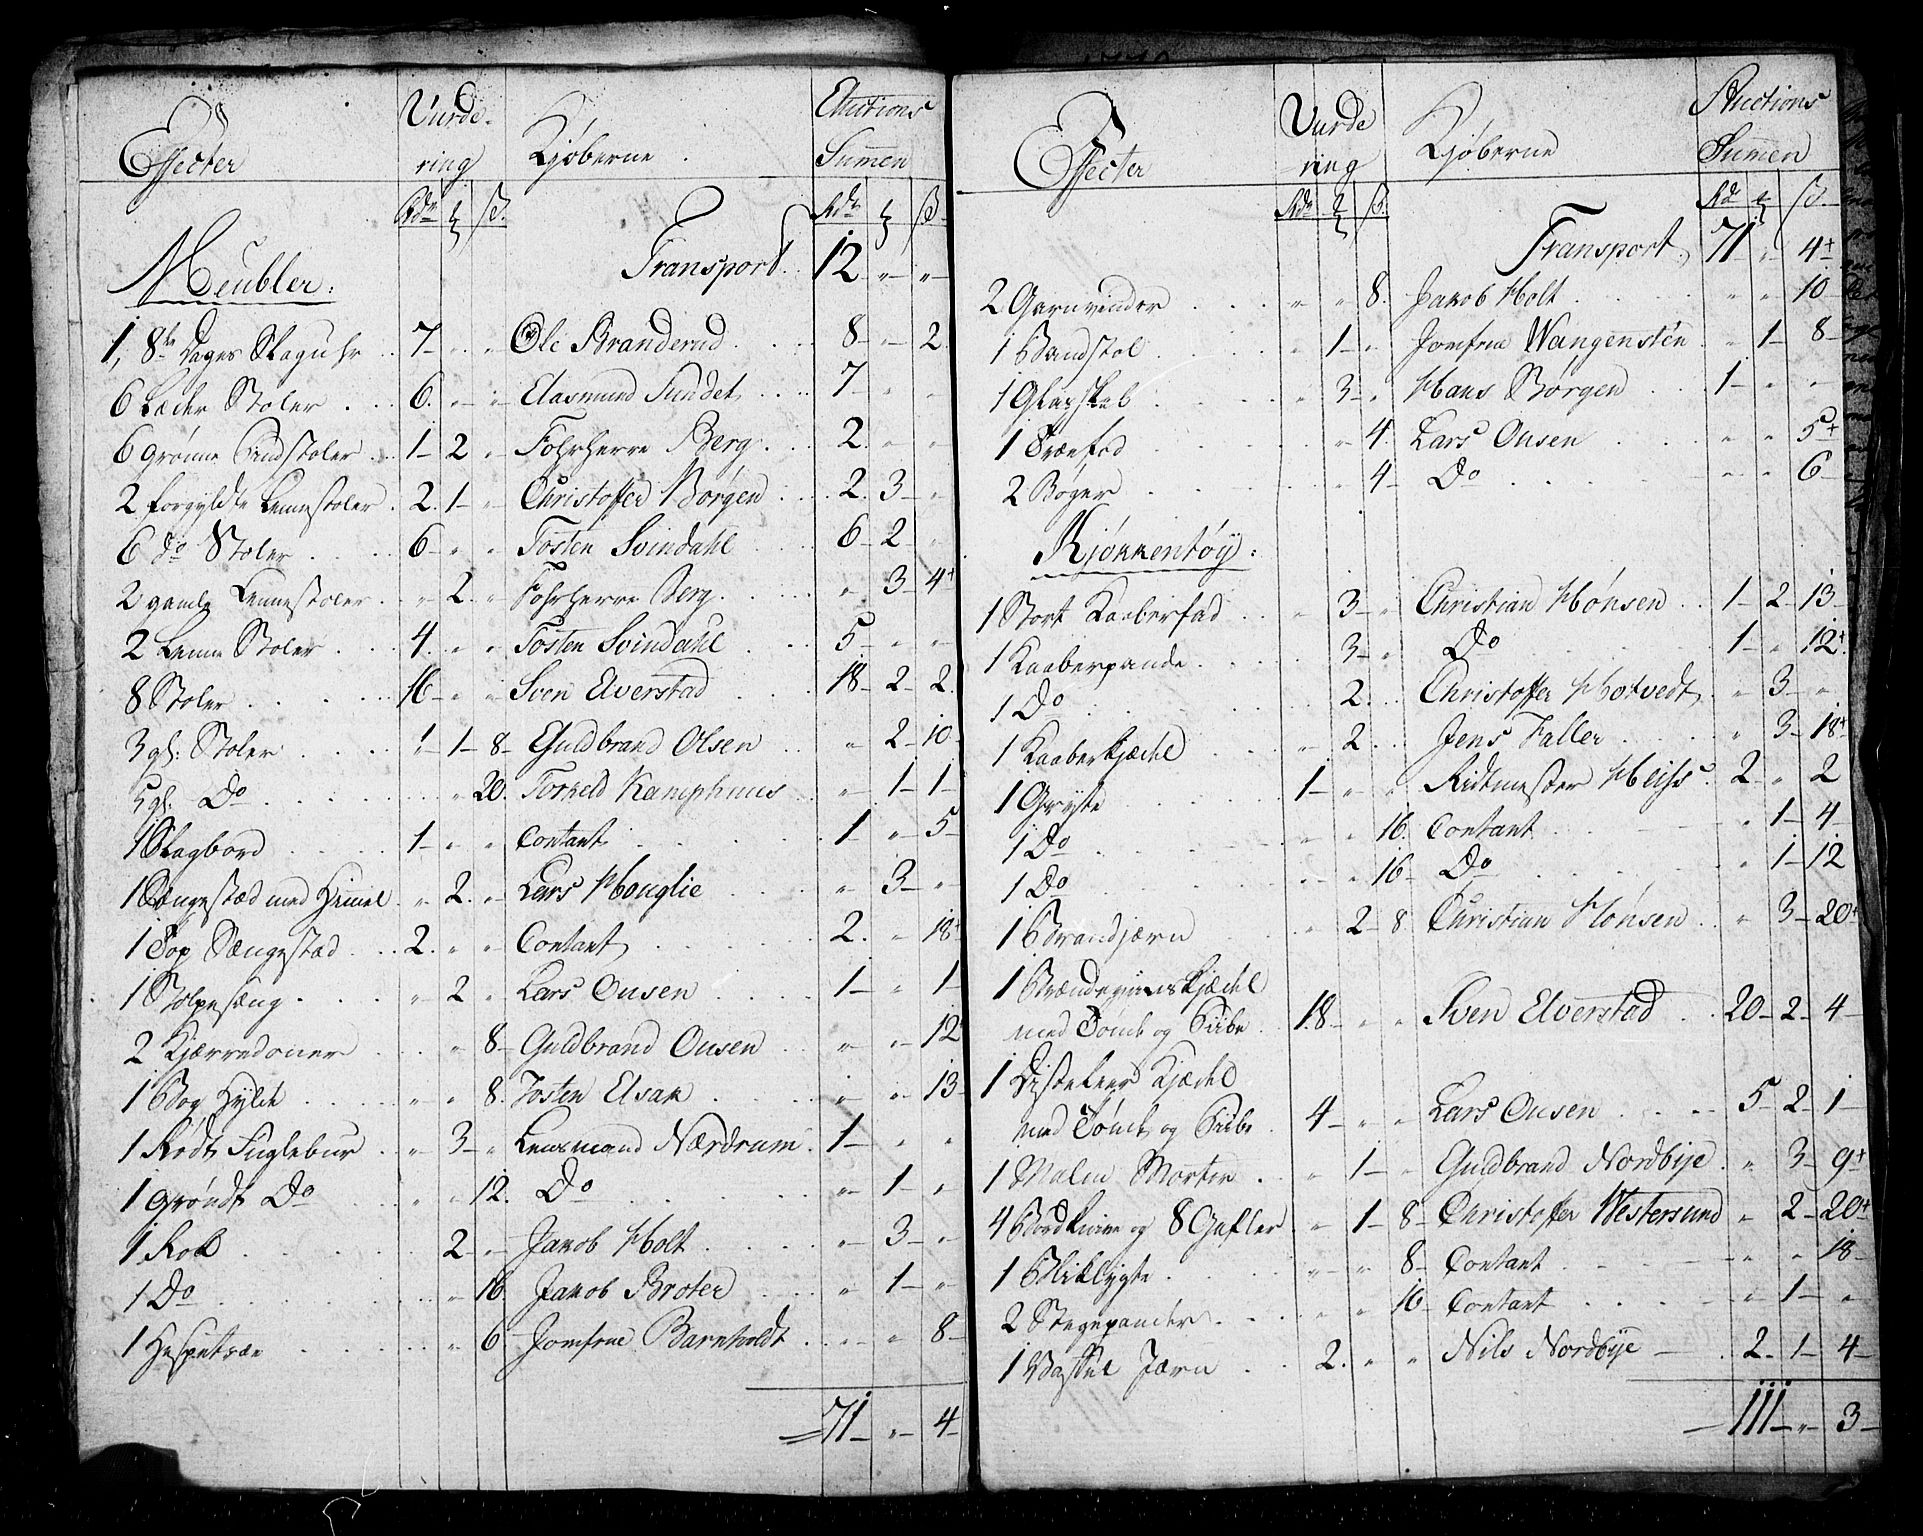 Effecter Vurde- Kjøberne Auctions
ring Summen
Rdr ß. Rdr ß
Meubler: Transport 12 " "
1, 8te Dages Slaguhr 7 " " Ole Branderud 8 " 2
6 Læder Stoler 6 " " Elasmund Sundet 7 " "
6 grønne Bindstoler 1 2 " Fohrherre Berg 2 " "
2 forgyldte Lennestoler 2 1 " Christoffer Børgen 2 3 "
6 do Stoler 6 " " Tosten Svindahl 6 2 "
2 gamle Lennestoler " 2 " Fohrherre Berg " 3 4+
2 Lenne Stoler 4 " " Tosten Svindahl 5 " "
8 Stoler 16 " " Sven Elverstad 18 2 2
3 gl: Stoler " 1 8 Guldbrand Olsen " 2 10
5 gl: Do " 20 Torkeld Kamphuus " 1 1
1 Slagbord 1 " " Contant 1 " 5
1 Sengestæd med Himel " 2 " Lars Houglie " 3 "
1 Top Sængestad 2 " " Contant 2 " 18+
1 Stolpesæng " 2 " Lars Ousen 1 " 1
2 Kjærredoner " 8 Guldbrand Ousen " " 12
1 Bog Hylde " " 8 Tosten Elsak " " 13
1 Rødt Fuglebur " 3 " Lensmand Nærdrum 1 " "
1 grøndt Do " " 12 Do " 1 "
1 Rok 2 " Jakob Holt " 3 "
1 Do " 16 Jakob Broter " 1 "
1 Hespetræe " 6 Jomfrue Barnholdt " " 8
71 " 4
Effecter Vurde Kjøberne Auctions
ring Summen
Rdr ß. Rd ß.
Transport 71 " 4+
2 Garnvinder " " 8 Jakob Holt " " 10
1 Bandstol " 1 " Jomfrue Wangensten " 1 8
1 Glasskab " 3 " Hans Børgen 1 " "
1 Træefad " 4 Lars Ousen " " 5+
2 Bøger " 4 Do " " 6
Kjøkkentøy:
1 Stort Kaaberfad " 3 " Christian Hønsen 1 2 13
1 Kaaberpande 3 " Do 1 " 12+
1 Do 2 Christoffer Hotvedt " 3 "
1 Kaaberkjædel " 2 Jens Faller " 3 18+
1 Gryte 1 " " Ridtmester Heiss 2 " 2
1 Do " " 16 Contant " 1 4
1 Do " " 16 Do " 1 12
1 Brandjærn " 2 8 Christian Hønsen " 3 20+
1 Brændeviinskjædel
med Tønde og Piibe 18 " " Sven Elverstad 20 2 4
1 Disteleer Kjædel
med Tønde og Piibe 4 " " Lars Ousen 5 2 1
1 Malm Morter " 1 " Guldbrand Nordbye " 3 9+
4 Bordknive og 8 Gafler " 1 8 Christoffer Westersund " 2 20+
1 Bliklygte " " 8 Contant " " 18
2 Stegepander " " 16 Contant " 1 "
1 Vaffel Jærn 2 " " Nils Nordbye 2 1 4
111 " 3